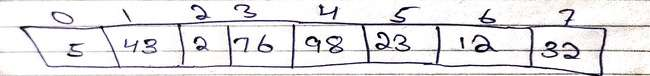 0 1 2 3 4 5 6 7
5 43 2 76 98 23 12 32